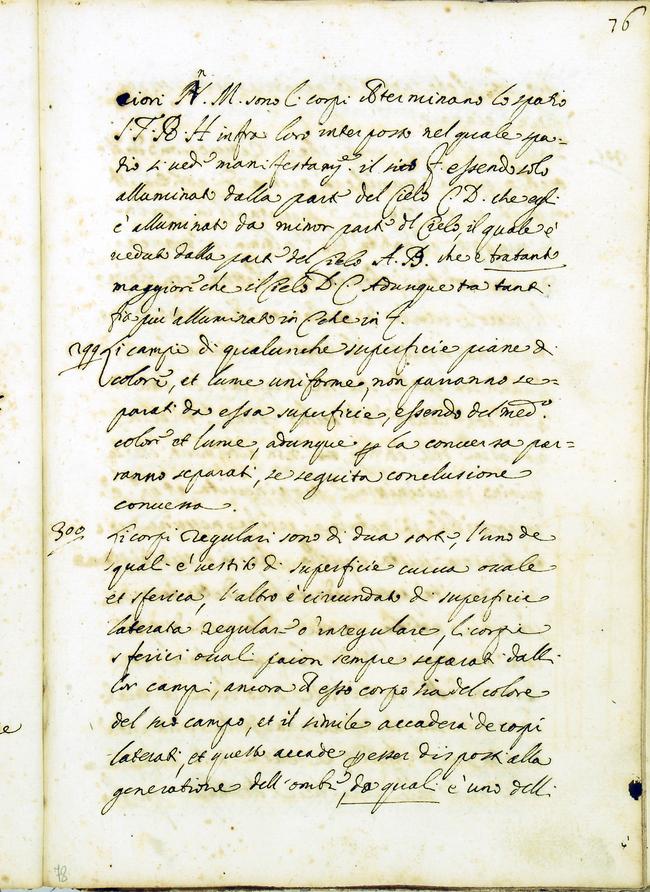 76
ciori N. M. sono li corpi che terminano lo spatio
S. T. R. H infra loro interposto nel quale spa-
tio si vede manifestam.e il sito f. essendo solo
alluminato dalla parte del Cielo C. D. che egli
è alluminato da minor parte del Cielo, il quale è
veduto dalla parte del cielo A. B. che è tratanto
maggiore che il Cielo D. C. Adunque tra tanto
fia più alluminato in C che in f.
299 li campi di qualunche superficie piane di
colore, et lume uniforme, non parranno se=
parati da essa superficie, essendo del med.o
colore et lume, adunque per la conversa par=
ranno separati, se seguita conclusione
conversa.
300 Li corpi regulari sono di dua sorte, l'uno de
quali è vestito di superficie curva ovale
et sferica, l'altro è circundato di superficie
laterata regulare ò inregulare, li corpi
sferici ovali paion sempre separati dalli
lor campi, ancora che esso corpo sia del colore
del suo campo, et il simile accaderà de corpi
laterati, et questo accade per esser disposti alla
generatione dell'ombre, da quali è uno delli
78